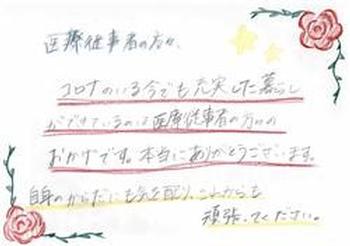 医療従事者の方々、
コロナのいる今でも充実した暮らし
ができているのは医療従事者の方々の
おかげです。本当にありがとうございます。
自身のからだにも気を配り、これからも
頑張ってください。